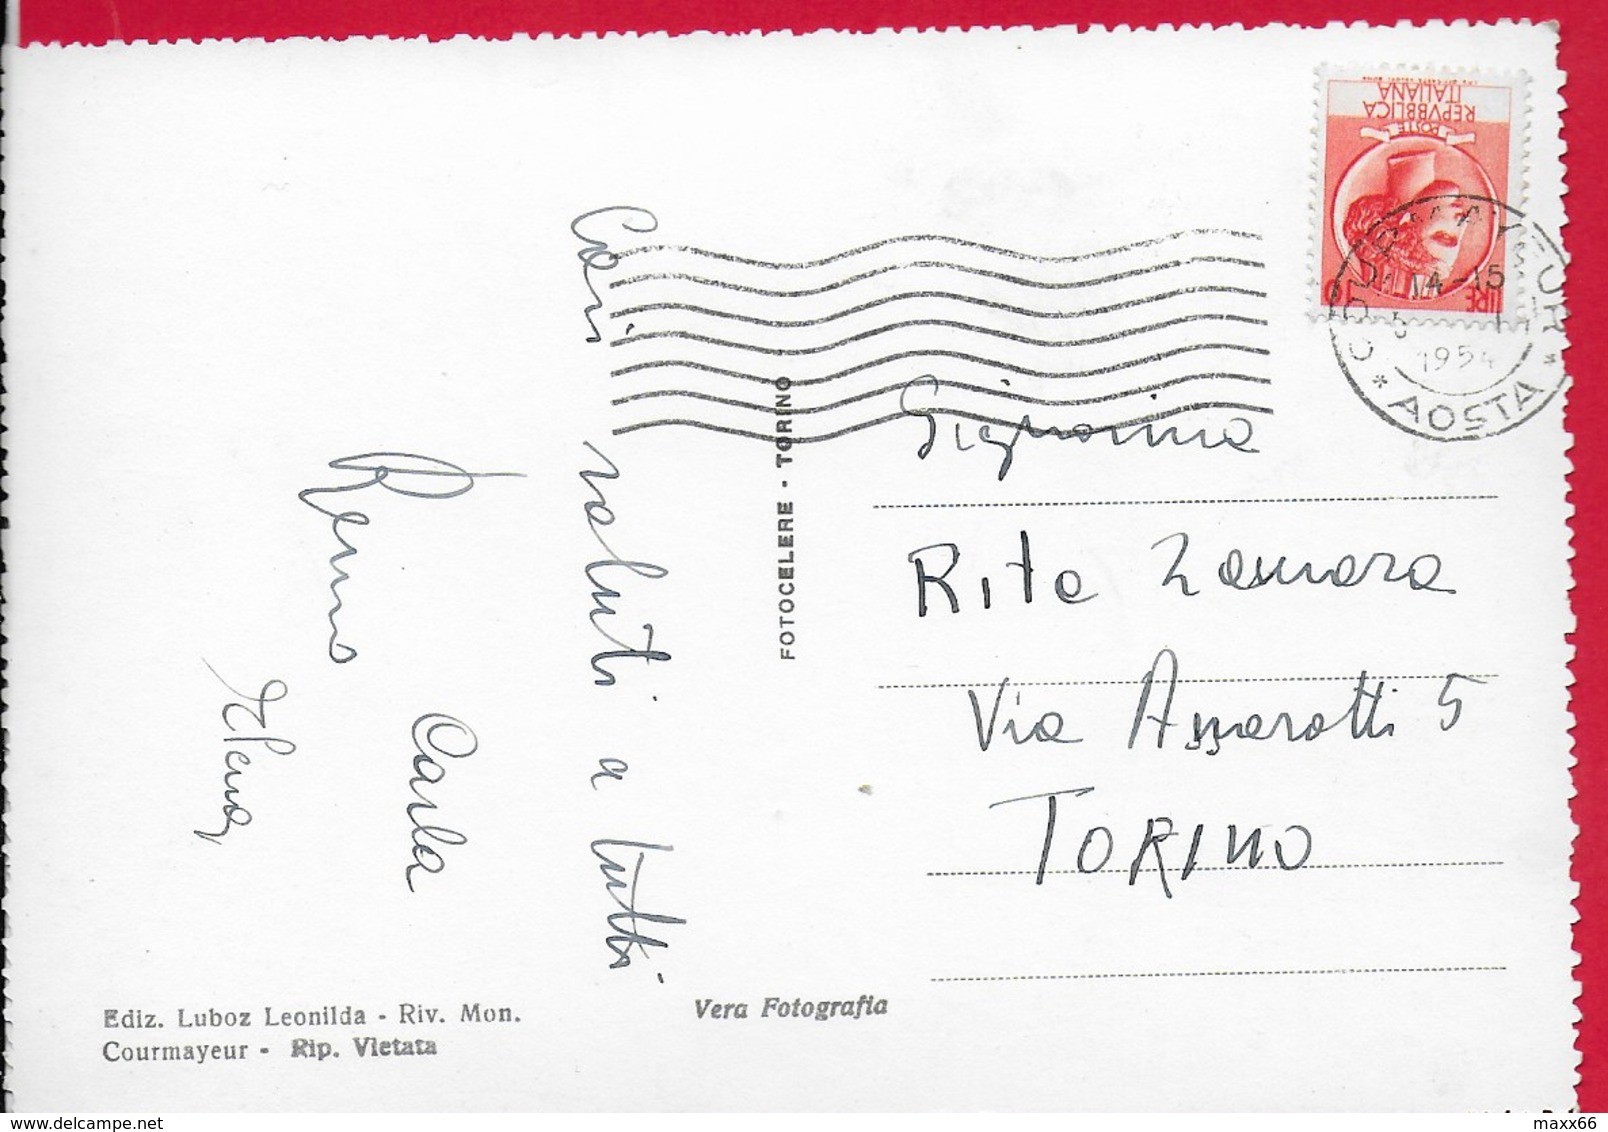 Cari saluti a tutti
Remo
Carla
Elena
FOTOCELERE - TORINO
REPVBBLICA
ITALIANA
POSTE
LIRE
COURMAYEUR
14-15
1954
* AOSTA *
Signorina
Rita Zamara
Via Assarotti 5
TORINO
Ediz. Luboz Leonilda - Riv. Mon.
Courmayeur - Rip. Vietata
Vera Fotografia
maxx66